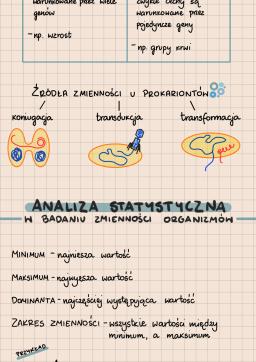 warunkowane przez wiele
genów
- np. wzrost
zwykle cechy są
warunkowane przez
pojedyncze geny
- np. grupy krwi
ŹRÓDŁA ZMIENNOŚCI U PROKARIONTÓW
koniugacja transdukcja transformacja
ANALIZA STATYSTYCZNA
W BADANIU ZMIENNOŚCI ORGANIZMÓW
MINIMUM - najniższa wartość
MAKSIMUM - najwyższa wartość
DOMINANTA - najczęściej występująca wartość
ZAKRES ZMIENNOŚCI - wszystkie wartości między
minimum, a maksimum
PRZYKŁAD